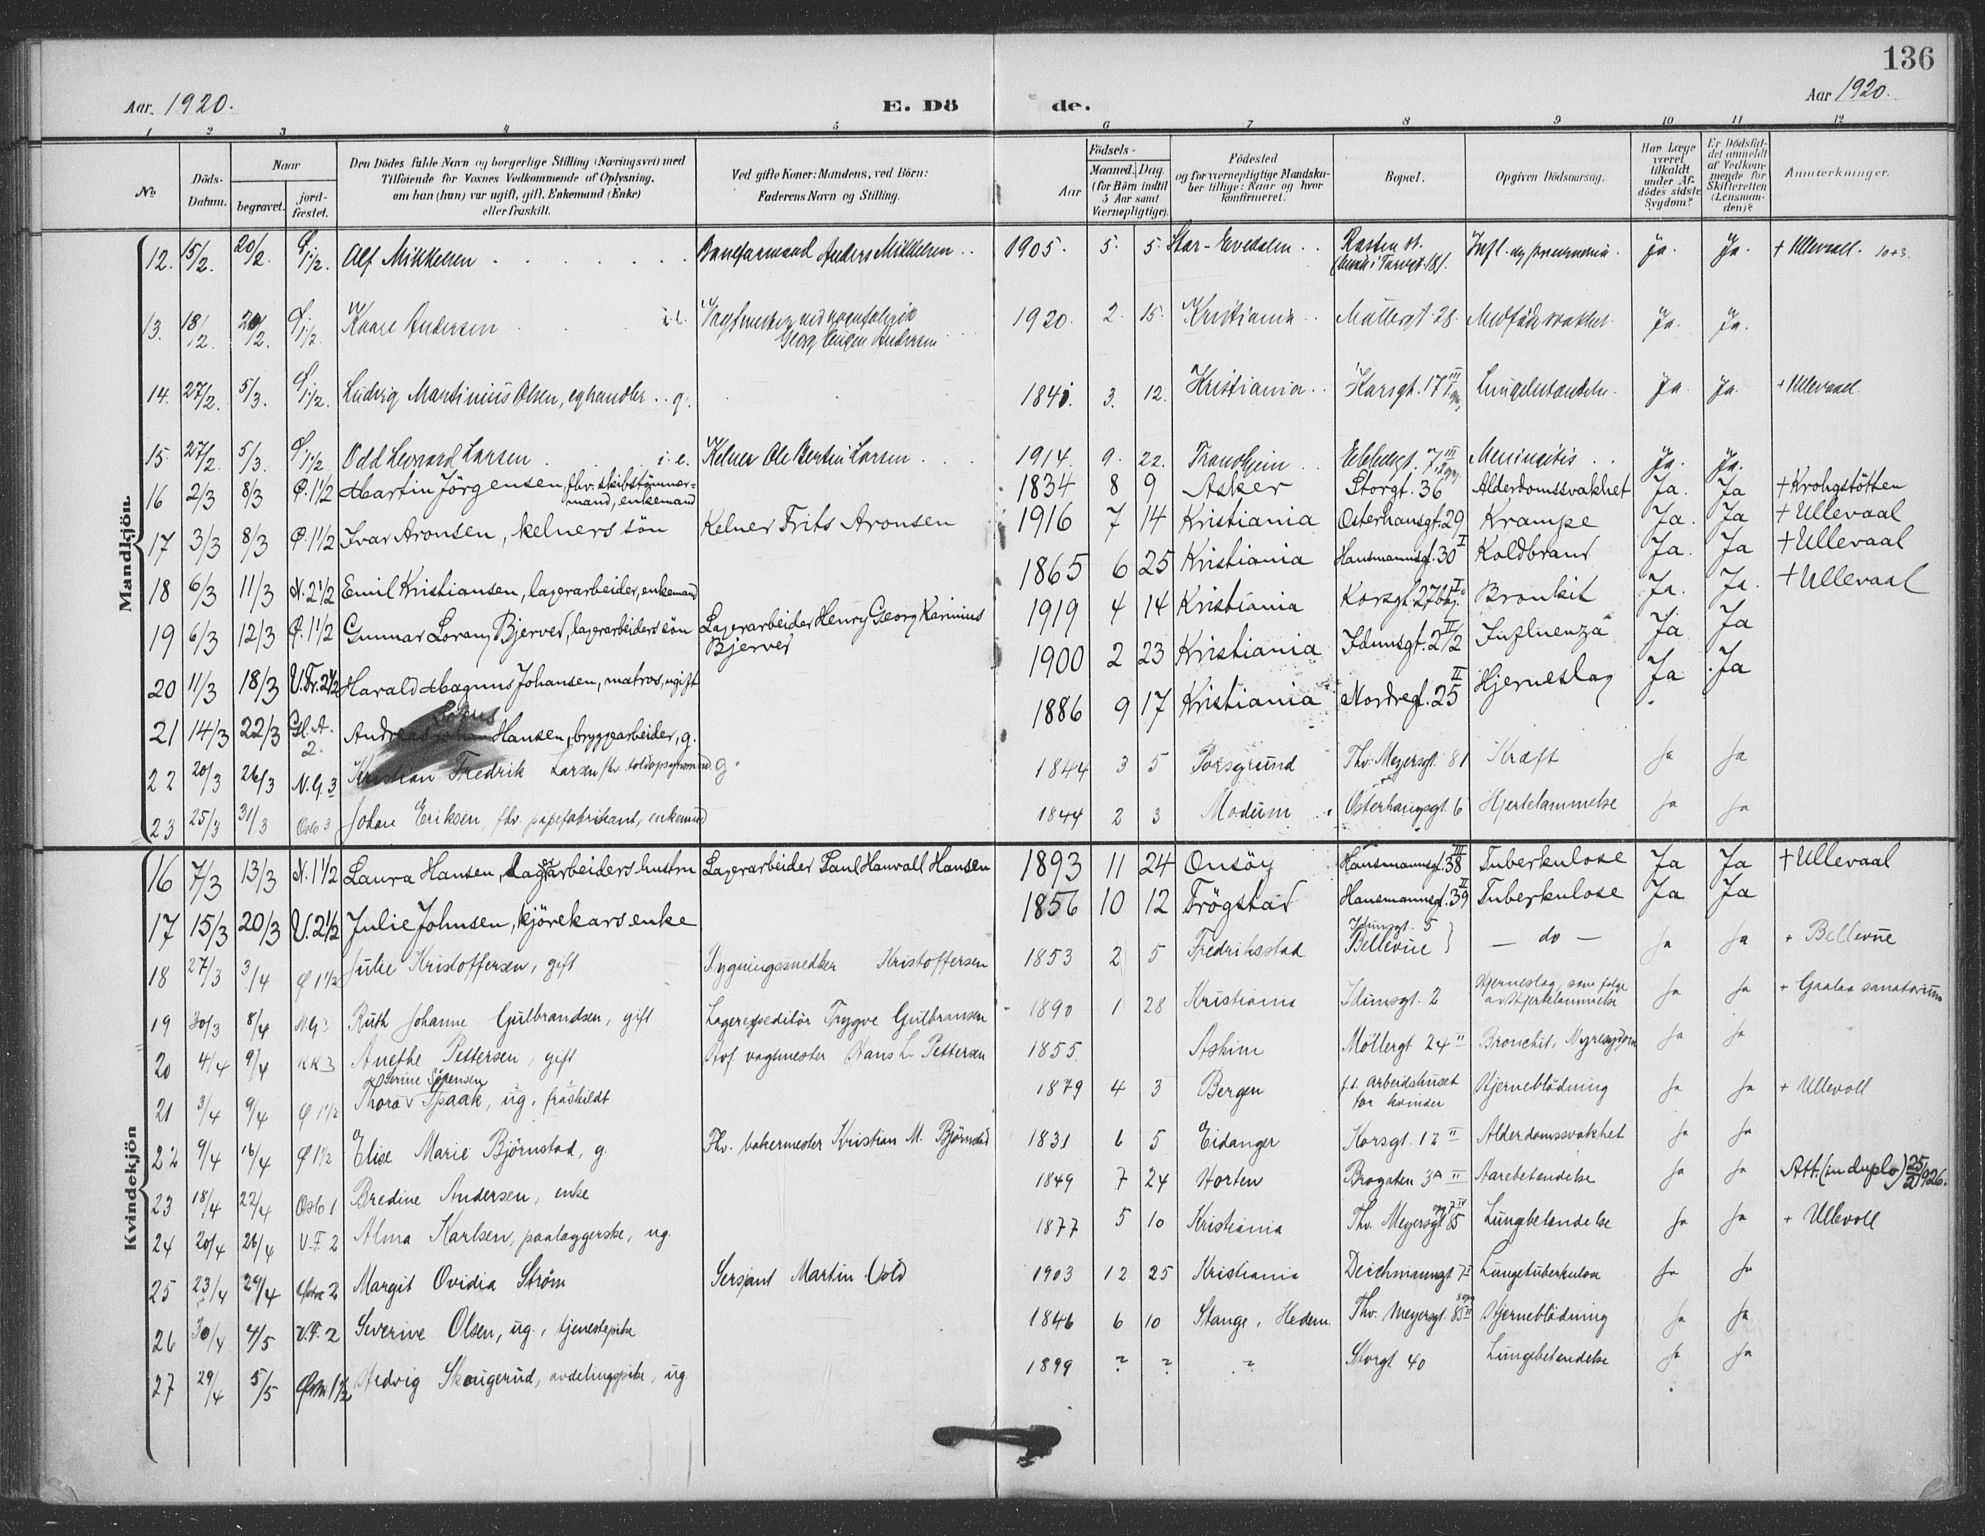 136
Aar. 1920.
E. Dö
de.
Aar 1920.
1 2 3 4 5 6 7 8 9 10 11 12
No
Döds-Datum.
Naar
begravet.
jord-fæstet.
Den Dödes fulde Navn og borgerlige Stilling (Næringsvei) med
Tilföiende for Voxnes Vedkommende af Oplysning,
om han (hun) var ugift, gift, Enkemand (Enke)
eller fraskilt.
Ved gifte Koner: Mandens, ved Börn:
Faderens Navn og Stilling.
Födsels-
Aar
Maaned. Dag.
(for Börn indtil
5 Aar samt
Værnepligtige).
Födested
og for værnepligtige Mandska-
ber tillige: Naar og hvor
konfirmeret.
Bopæl.
Opgiven Dödsaarsag.
Har Læge
været
tilkaldt
under Af-
dödes sidste
Sygdom?
Er Dödsfal-
det anmeldt
af Vedkom-
mende for
Skifteretten
(Lensman-
den)?
Anmerkninger.
Mandkjön
12. 15/2. 20/2. 1/2. Alf Mikkelsen Anders Mikkelsen 1905. 5. 5 Infl. og pneumonia. Ja. Ja. + Ullevaal. 10+3.
13. 18/2 20/2. 1/2. Kaare Andersen Georg Andersen 1920. 2. 15. Kristiania Møllergt. 28. Medfødt svakhet. Ja. Ja.
14. 27/2. 5/3. 1/2. Ludvig Martinius Olsen, g. 3. 12. Kristiania Korsgt. 17 III Ja. Ja. + Ullevaal.
15 27/2. 5/3. 1 1/2 Odd Leonard Larsen i. e. Kelner Ole Bertin Larsen 1914. 9. 22. Trondhjem 7 III Meningitis Ja. Ja.
16 2/3 8/3 P. 1 1/2 Martin Jörgensen, fhv. skibstömmer-
mand, enkemand 1834 8 9 Asker Storgt. 36 Alderdomssvakhet Ja. Ja + Krohgstötten
17 3/3 8/3 P. 1 1/2 Ivar Aronsen, kelners sön Kelner Frits Aronsen 1916 7 14 Kristiania Osterhausgt. 29 Krampe Ja. Ja + Ullevaal
18 6/3 11/3 N. 2 1/2 Emil Kristiansen, lagerarbeider, enkemand 1865 6 25 Kristiania Hausmannsgt. 30 I Koldbrand Ja. Ja + Ullevaal
19 6/3 12/3 P. 1 1/2 Gunnar Lorang Bjerved, lagerarbeiders sön Lagerarbeider Henry Georg Karinius
Bjerved 1919 4 14 Kristiania Korsgt. 27 Bronkit Ja. Ja. + Ullevaal
20 11/3 18/3 V. Fr. 2 1/2 Harald Magnus Johansen, matros, ugift 1900 2 23 Kristiania Idunsgt. 2 II Influenza Ja Ja
21 14/3 22/3 Gl. A. 2. Andreas Hansen, bryggearbeider, g. 1886 9 17 Kristiania Nordregt. 25 II Hjerneslag Ja Ja
22 20/3 26/3 N. G. 3 Kristian Fredrik Larsen fhv. toldopsynsmand g. 1844 3 5 Porsgrund Thv. Meyersgt. 81 Kræft Ja Ja
23 25/3 31/3 Oslo 3 Johan Eriksen, fhv. pipefabrikant, enkemand 1844 2 3 Modum Osterhausgt. 6 Hjertelammelse Ja Ja
Kvindekjön
16 7/3 13/3 N. 1 1/2 Laura Hansen, lagerarbeiders hustru Lagerarbeider Paul Hanvall Hansen 1893 11 24 Onsöy Hausmannsgt. 38 III Tuberkulose Ja Ja + Ullevaal
17 15/3 20/3 V. 2 1/2 Julie Johnsen, kjörekars enke 1856 10 12 Trögstad Hausmannsgt. 39 II Tuberkulose Ja Ja
18 27/3 3/4 P 1 1/2 Julie Kristoffersen, gift Bygningssnedker Kristoffersen 1853 2 5 Fredriksstad Idunsgt. 5
Bellevue } — do — Ja Ja + Bellevue
19 30/3 8/4 N G 3 Ruth Johanne Gulbrandsen, gift Lagerexpeditör Trygve Gulbransen 1890 1 28 Kristiania Idunsgt. 2 Hjerneslag, som følge
av Hjertelammelse Ja Ja + Grefsen sanatorium
20 4/4 9/4 K K 3 Anethe Pettersen, gift vagtmester Hans L. Pettersen 1855. Askim Möllergt 24 II Bronchit, Nyresygdom Ja Ja
21 3/4 9/4 P 1 1/2 Thora Serine Sörensen Spaak, ug. fraskildt 1879 4 3 Bergen f. t. Arbeidshuset
for kvinder Hjerneblödning Ja Ja + Ullevoll
22 9/4 16/4 P 1 1/2 Elise Marie Björnstad, g. Fhv. bakermester Kristian M. Björnstad 1831 6 5 Eidanger Korsgt. 12 II Alderdomssvakhet Ja Ja
23 18/4 22/4 Oslo 1 Bredine Andersen, enke 1849 7 24 Horten Brogaten 3A II Aarebetendelse Ja Ja Att. (in duplo) 25/2 1926.
24 20/4 26/4 V. F. 2 Alma Karlsen, paalæggerske, ug. 1877 5 10 Kristiania Thv. Meyersgt 85 Lungebetendelse Ja Ja + Ullevoll
25 23/4 29/4 2 Margit Ovidia Ström Sersjant Martin Vold 1903 12 25 Kristiania Deichmannsgt 7 I Lungetuberkulose Ja Ja
26 30/4 4/5 V. F. 2 Severine Olsen, ug., tjenestepike 1846 6 10 Stange, Hedem. Thv. Meyersgt. 85 II Hjerneblödning Ja Ja
27 29/4 5/5 1 1/2 Hedvig Skougerud, avdelingspike, ug. 1899 ? ? ? Storgt 40 Lungebetendelse Ja Ja